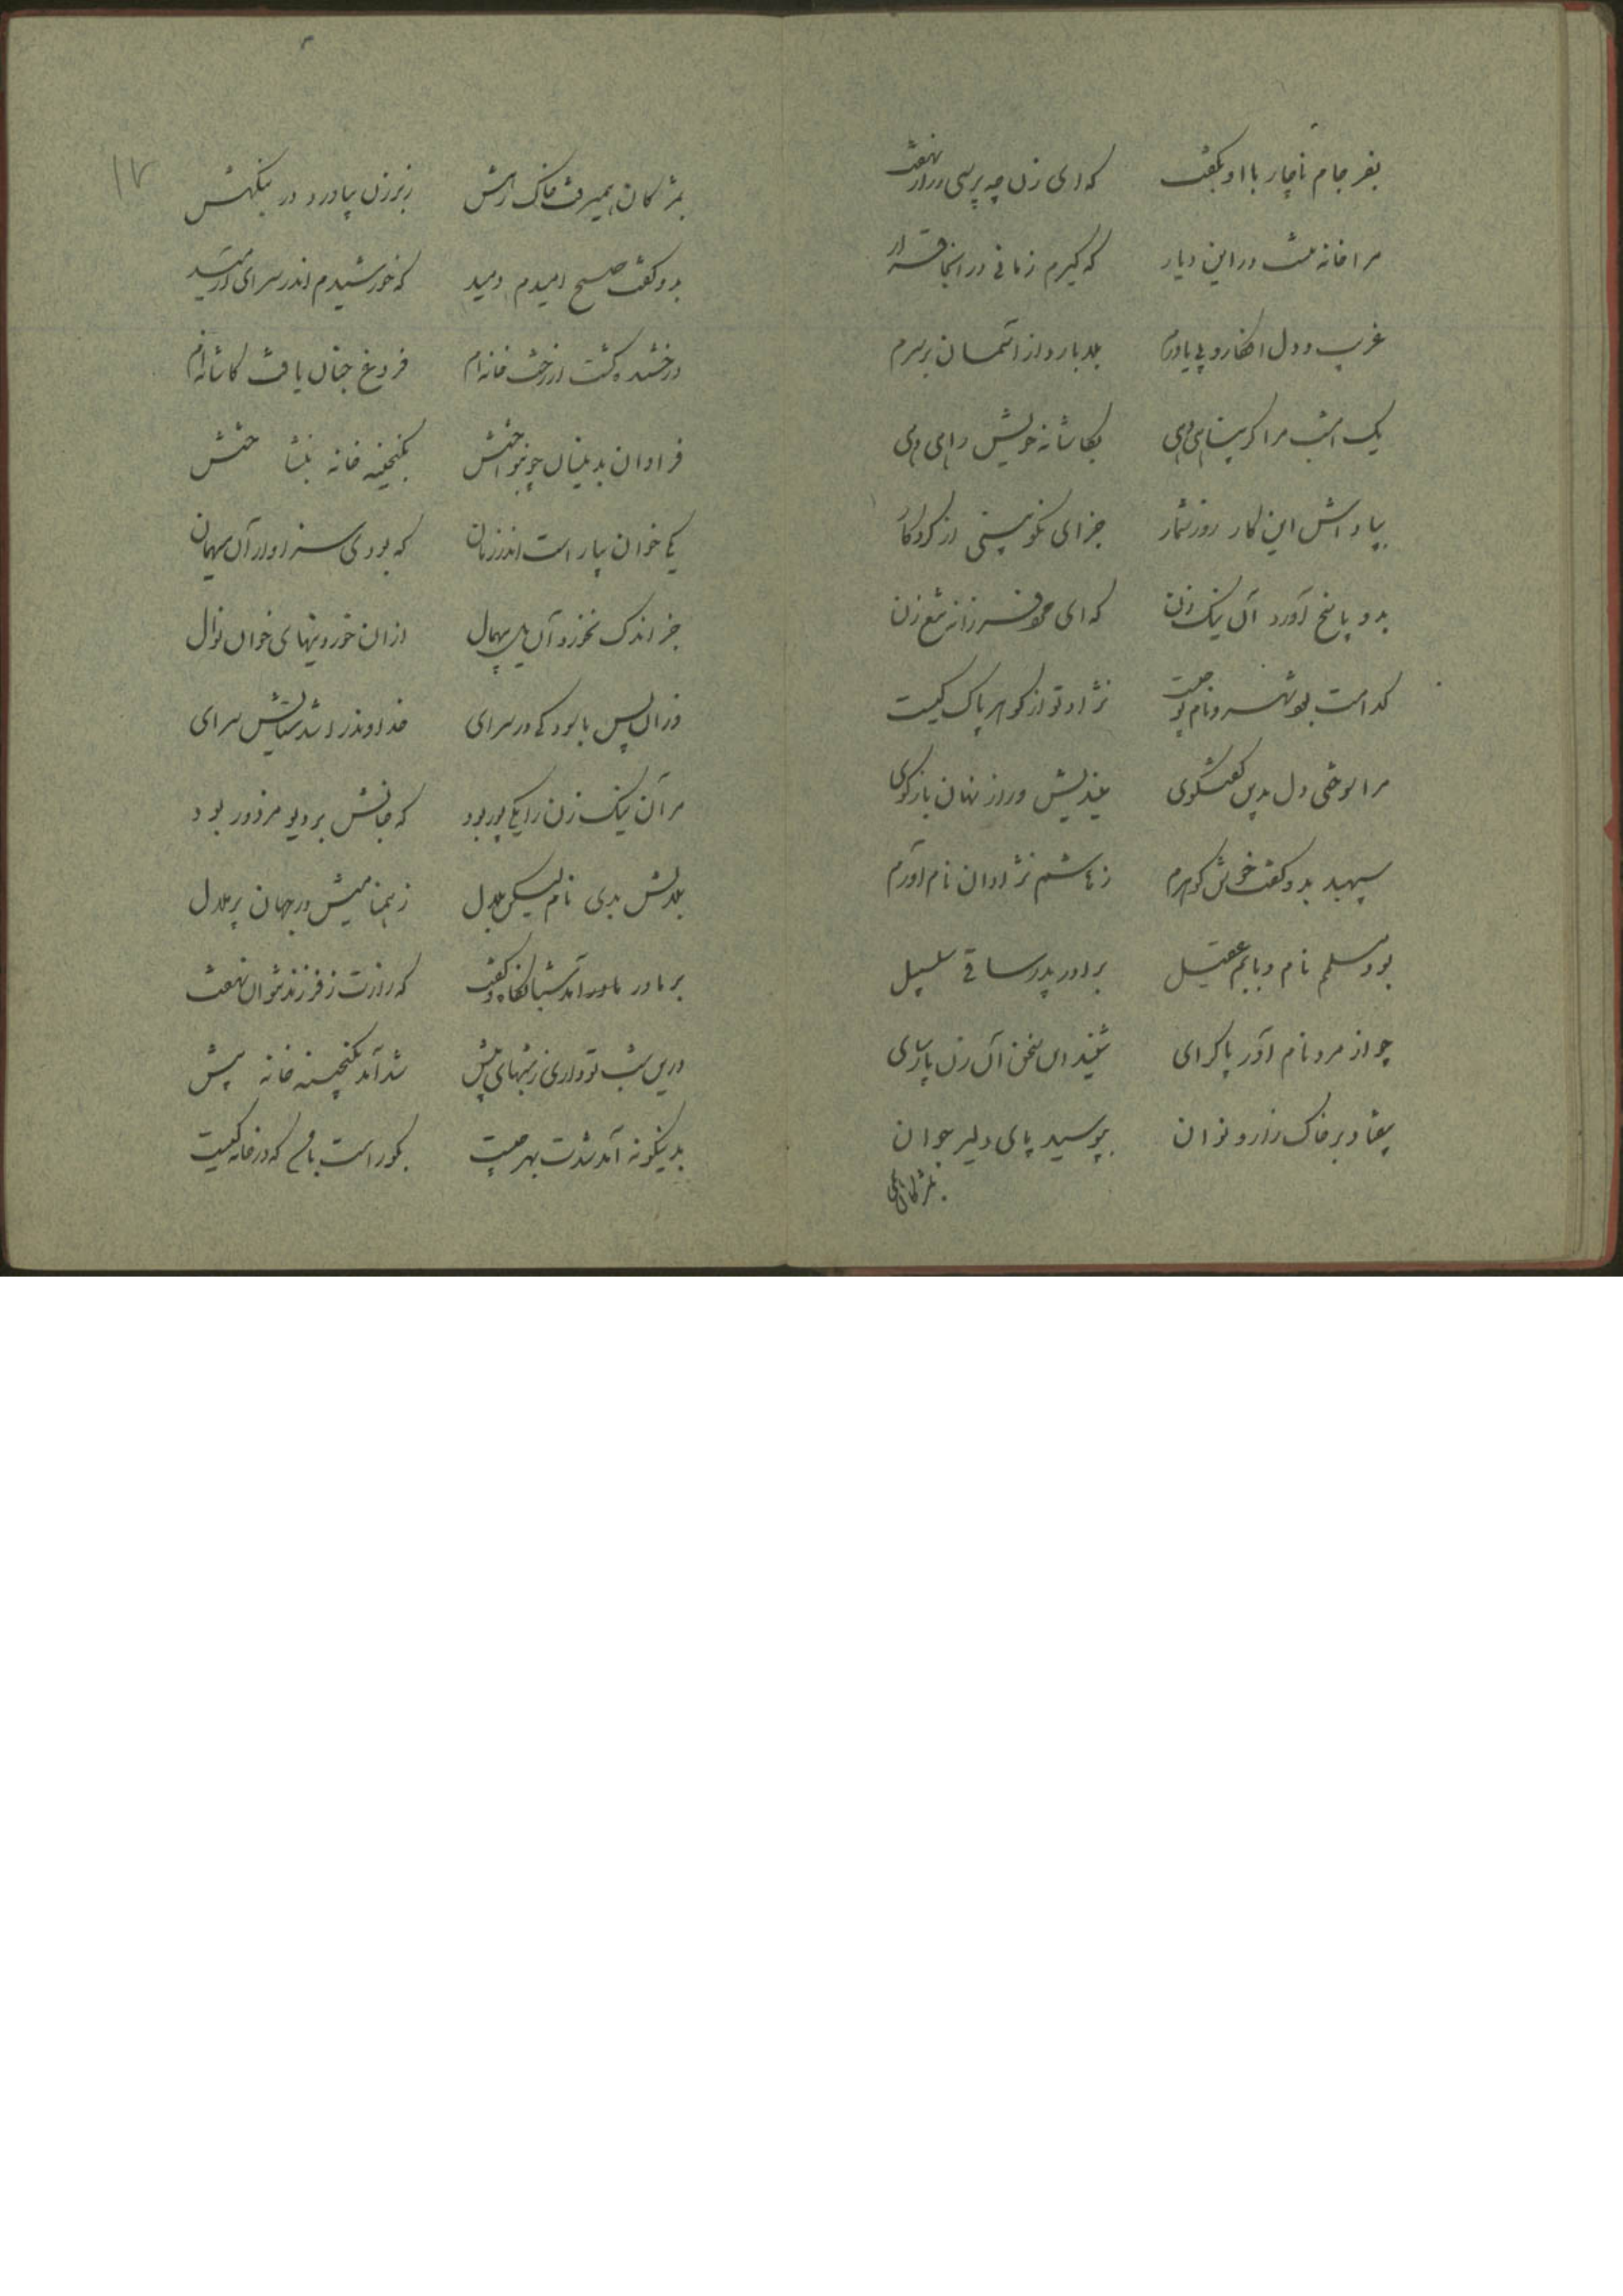 بفرجام ناچار با او بگفت که ای زن چه پرسی ز راز نهفت
مرا خانه نیست در این دیار که گیرم زمانی در آنجا قرار
غریب و دل افکار و بی یاورم بلا بارد از آسمان بر سرم
یک امشب مرا گر پناهی دهی بکاشانه خویش راهی دهی
بپاداش این کار روز شمار جزای نکو بینی از کردگار
بدو پاسخ آورد آن نیک زن که ای فرزانه شمع زن
کدامست بوم شهر و نام تو چیست نژاد تو از گوهر پاک کیست
مرا سوختی دل بدین گفتگوی میندیش و راز نهان بازگوی
سپهبد بدو گفت خوش گوهرم ز هاشم نژادان نام آورم
بود مسلم نام و بابم عقیل برادر پدر ساقی سلسبیل
چو از مرد نام آور پاکرای شنید این سخن آن زن پارسای
بیفتاد بر خاک زار و نوان ببوسید پای دلیر جوان
بمژگان همی
۱۷
بمژگان همیرفت خاک رهش ز برزن بیاورد در بنگهش
بدو گفت صبح امیدم دمید که خورشیدم اندر سرای آرمید
درخشنده گشت از رخت خانه‌ام فروغ جنان یافت کاشانه‌ام
فراوان بدینسان چو بنواختش بگنجینه خانه بنشاختش
یکی خوان بیاراست اندر زمان که بودی سزاوار آن میهمان
جز اندک نخورد آن یل بیهمال از آن خوردنیهای خوان نوال
وزان پس با بود که در سرای خداوند را شد ستایش سرای
مر آن نیک زن را یکی پور بود که جانش بر دیو مزدور بود
بلالش بدی نام لیکن بلال ز همنامیش در جهان پر ملال
بر مادر آمد شبانگاه و گفت که رازت ز فرزند نتوان نهفت
درین شب تو داری ز شبهای پیش شد آمد بگنجینه خانه بیش
بدینگونه آمد شدت بهر چیست بگو راست با من که در خانه کیست